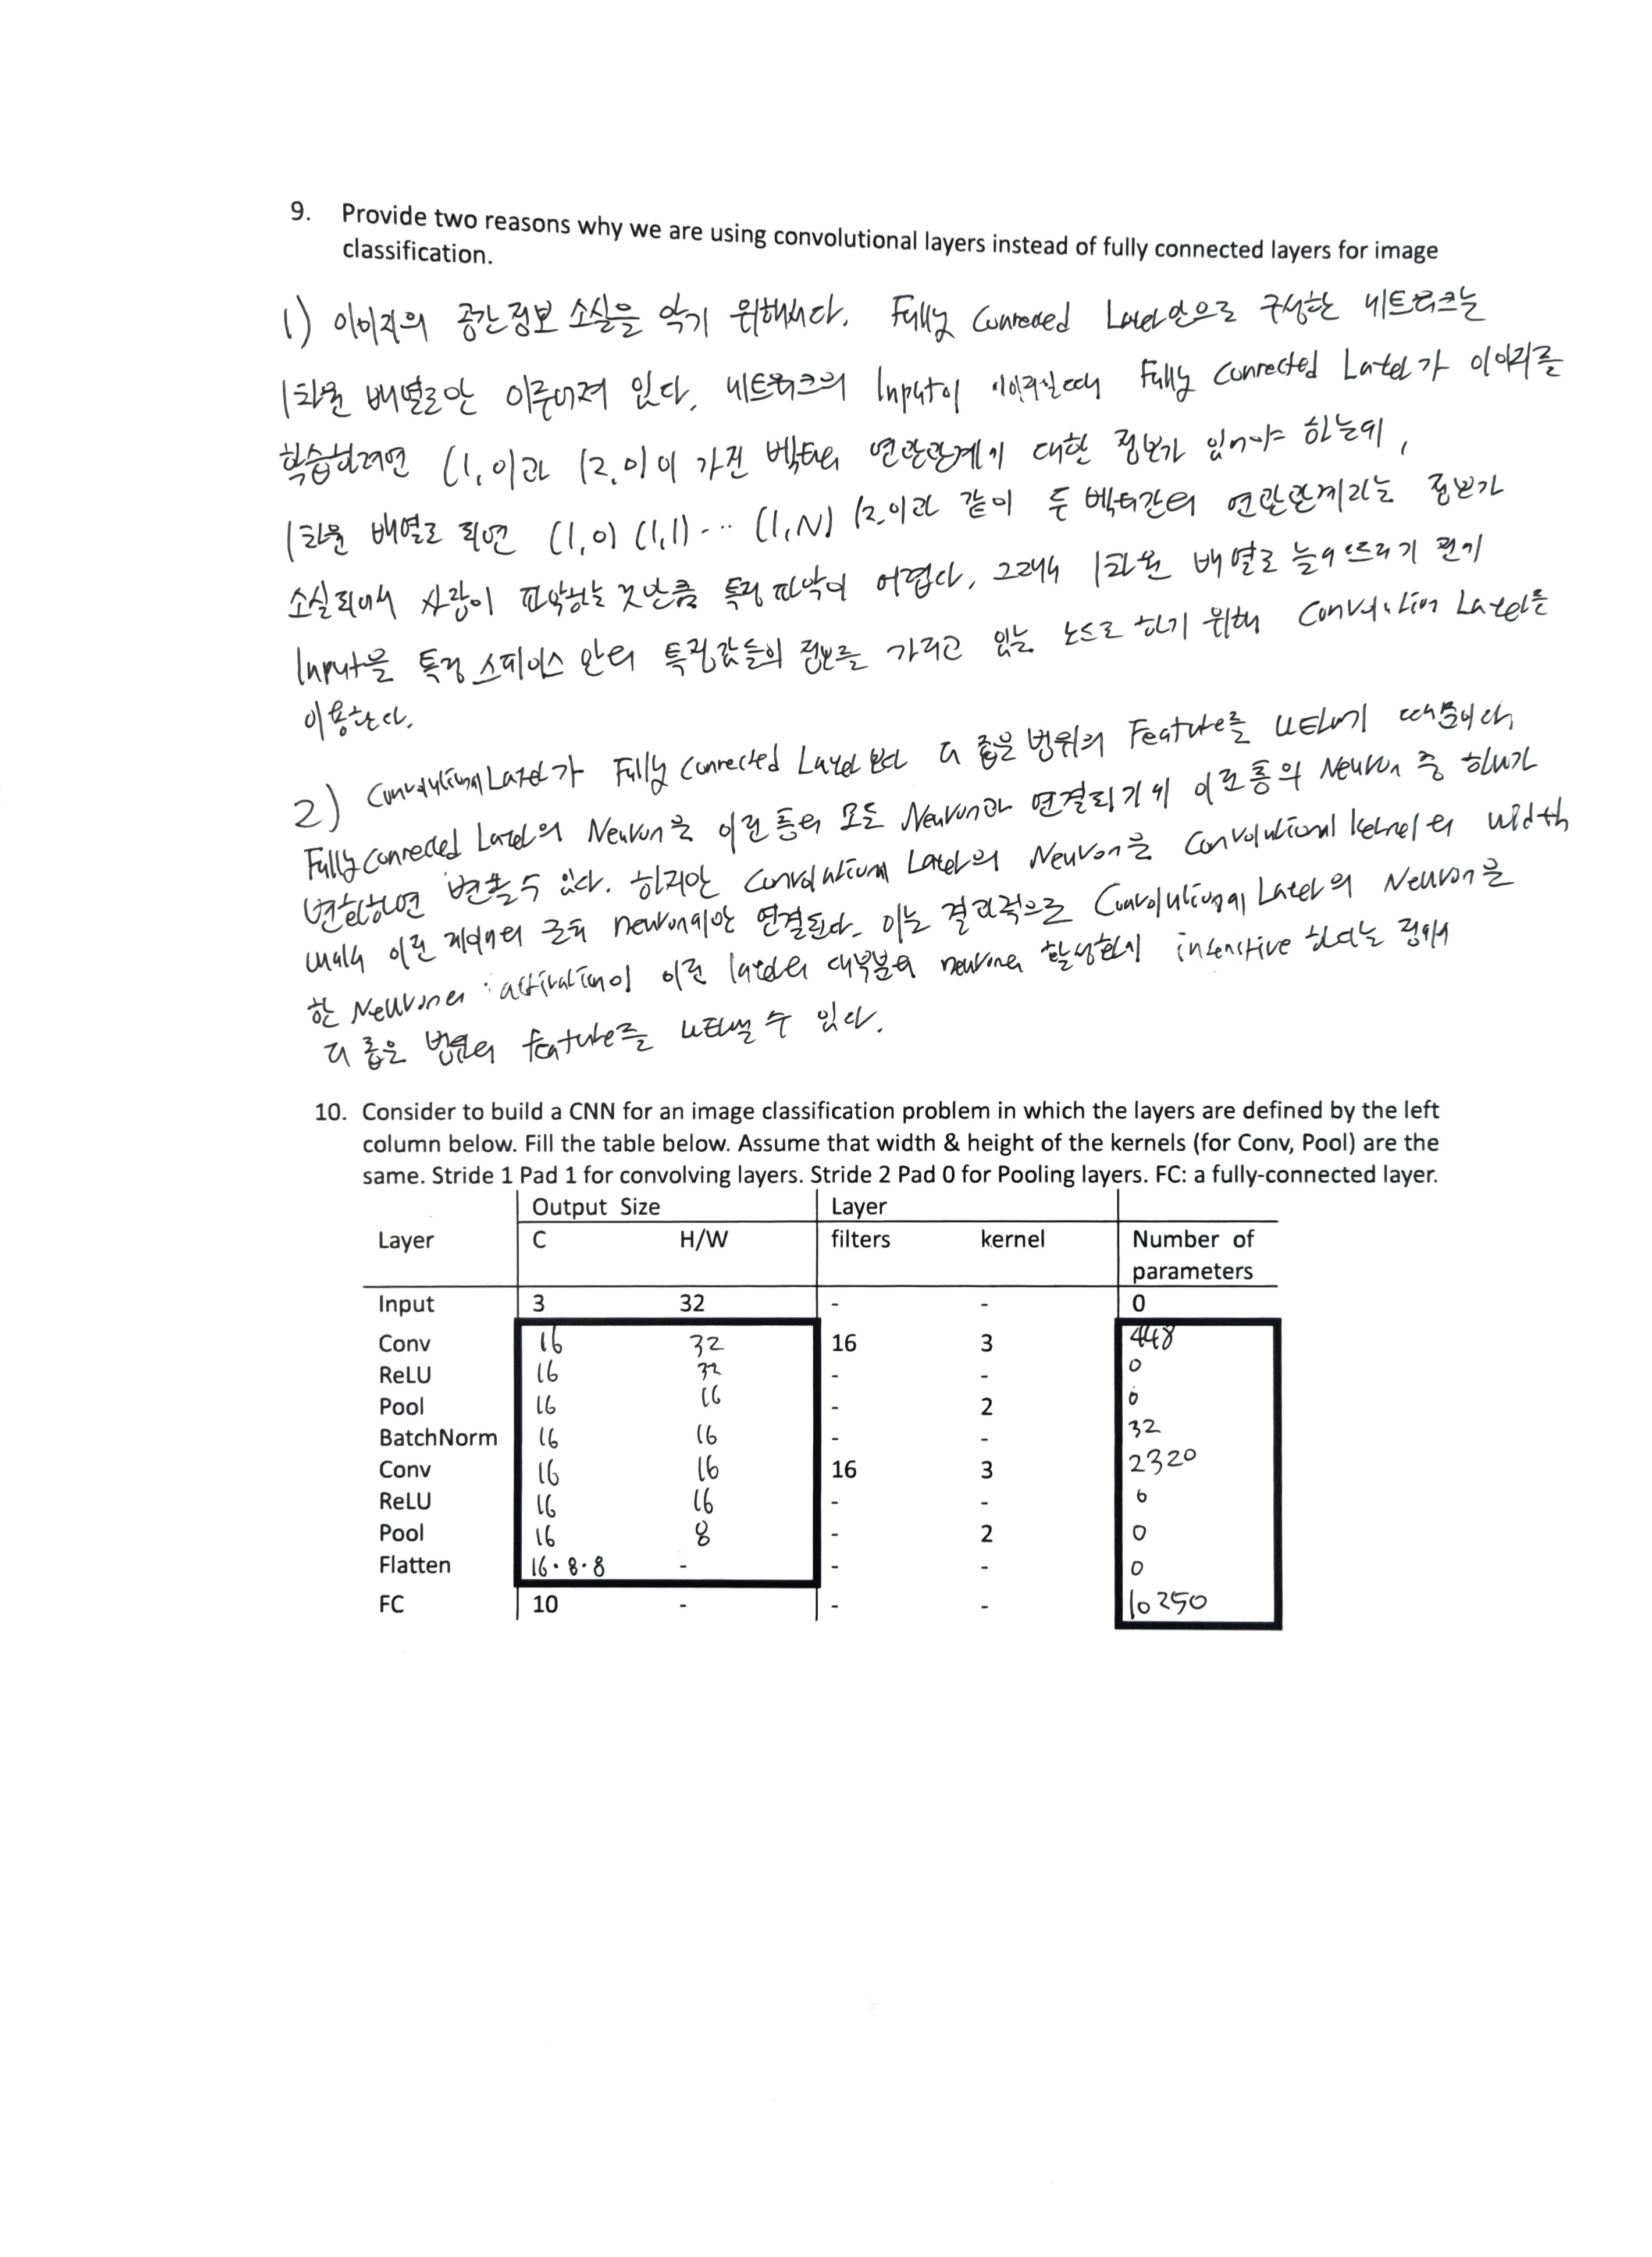 9. Provide two reasons why we are using convolutional layers instead of fully connected layers for image
classification.
1) 이미지의 공간정보 소실을 막기 위해서다. Fully Connected Layer만으로 구성한 네트워크는
1차원 배열로만 이루어져 있다. 네트워크의 Input이 이미지일때 Fully Connected Layer가 이미지를
학습하려면 (1,0)과 (2,0)이 가진 벡터의 연관관계에 대한 정보가 있어야 하는데,
1차원 배열로 되면 (1,0) (1,1) ... (1,N) (2,0)과 같이 두 벡터간의 연관관계라는 정보가
소실되어서 사람이 파악하는 것만큼 특징 파악이 어렵다. 그래서 1차원 배열로 늘어뜨리기 전에
Input을 특정 스페이스 안의 특징값들의 정보를 가지고 있는 노드로 하기 위해 Convolution Layer를
이용한다.
2) Convolutional Layer가 Fully Connected Layer보다 더 좁은 범위의 Feature를 나타내기 때문이다
Fully Connected Layer의 Neuron은 이전 층의 모든 Neuron과 연결되기에 이전 층의 Neuron 중 하나가
변화하면 변할 수 있다. 하지만 Convolutional Layer의 Neuron은 Convolutional kernel의 width
내에서 이전 레이어의 근처 neuron에만 연결된다. 이는 결과적으로 Convolutional Layer의 Neuron은
한 Neuron의 activation이 이전 layer의 대부분의 neuron의 활성화에 insensitive 하다는 점에서
더 좁은 범위의 feature를 나타낼 수 있다.
10. Consider to build a CNN for an image classification problem in which the layers are defined by the left
column below. Fill the table below. Assume that width & height of the kernels (for Conv, Pool) are the
same. Stride 1 Pad 1 for convolving layers. Stride 2 Pad 0 for Pooling layers. FC: a fully-connected layer.
Output Size Layer
Layer C H/W filters kernel Number of
parameters
Input 3 32 - - 0
Conv 16 32 16 3 448
ReLU 16 32 - - 0
Pool 16 16 - 2 0
BatchNorm 16 16 - - 32
Conv 16 16 16 3 2320
ReLU 16 16 - - 0
Pool 16 8 - 2 0
Flatten 16·8·8 - - - 0
FC 10 - - - 10250